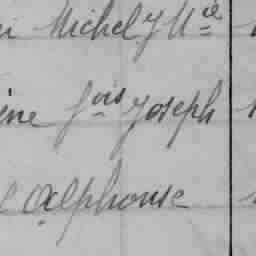 Michel J Mie
ine fois Joseph
Alphonse